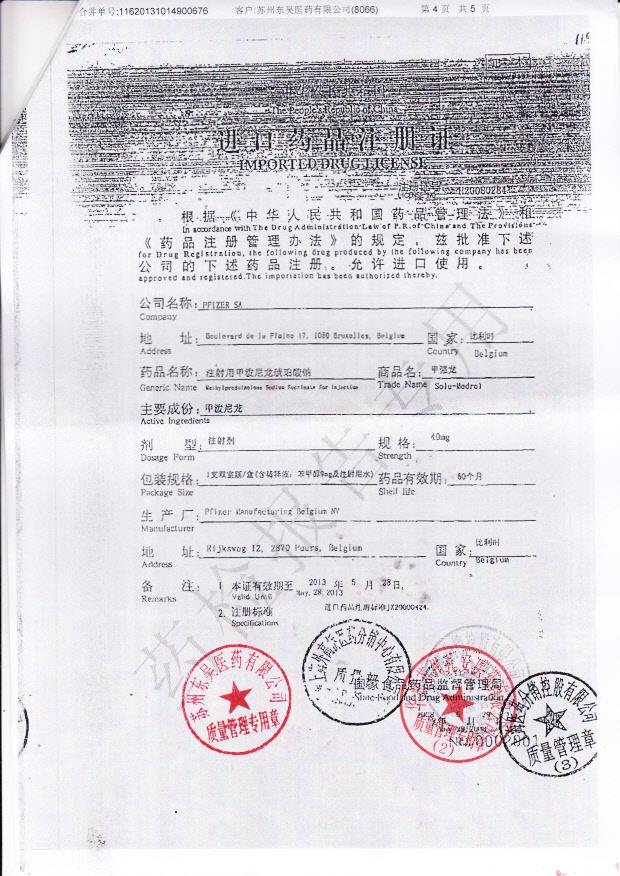 合并单号:11620131014900676 客户:苏州东吴医药有限公司(8066) 第 4 页 共 5 页
The People's Republic of China
进口药品注册证
IMPORTED DRUG LICENSE
根据《中华人民共和国药品管理法》和
In accordance with The Drug Administration Law of P.R.of China and The Provisions
《药品注册管理办法》的规定，兹批准下述
for Drug Registration, the following drug produced by the following company has been
公司的下述药品注册。允许进口使用。
approved and registered.The importation has been authorized thereby.
公司名称: PFIZER SA
Company
地 址: Boulevard de la Plaine 17, 1050 Bruxelles, Belgium 国家: 比利时
Address Country Belgium
药品名称: 注射用甲泼尼龙琥珀酸钠 商品名: 甲强龙
Generic Name Methylprednisolone Sodium Succinate for Injection Trade Name Solu-Medrol
主要成份: 甲泼尼龙
Active Ingredients
剂 型: 注射剂 规格: 40mg
Dosage Form Strength
包装规格: 1支双室瓶/盒(含稀释液：苯甲醇9mg及注射用水) 药品有效期: 60个月
Package Size Shelf life
生产厂: Pfizer Manufacturing Belgium NV
Manufacturer
地 址: Rijksweg 12, 2870 Puurs, Belgium 国家: 比利时
Address Country Belgium
备 注: 1. 本证有效期至 2013 年 5 月 28 日。
Remarks Valid Until May. 28, 2013
2. 注册标准 进口药品注册标准JX20000424.
Specifications
药检报告专用
苏州东吴医药有限公司
质量管理专用章
国家食品药品监督管理局
State Food and Drug Administration
(2)
控股有限公司
质量管理章
(3)